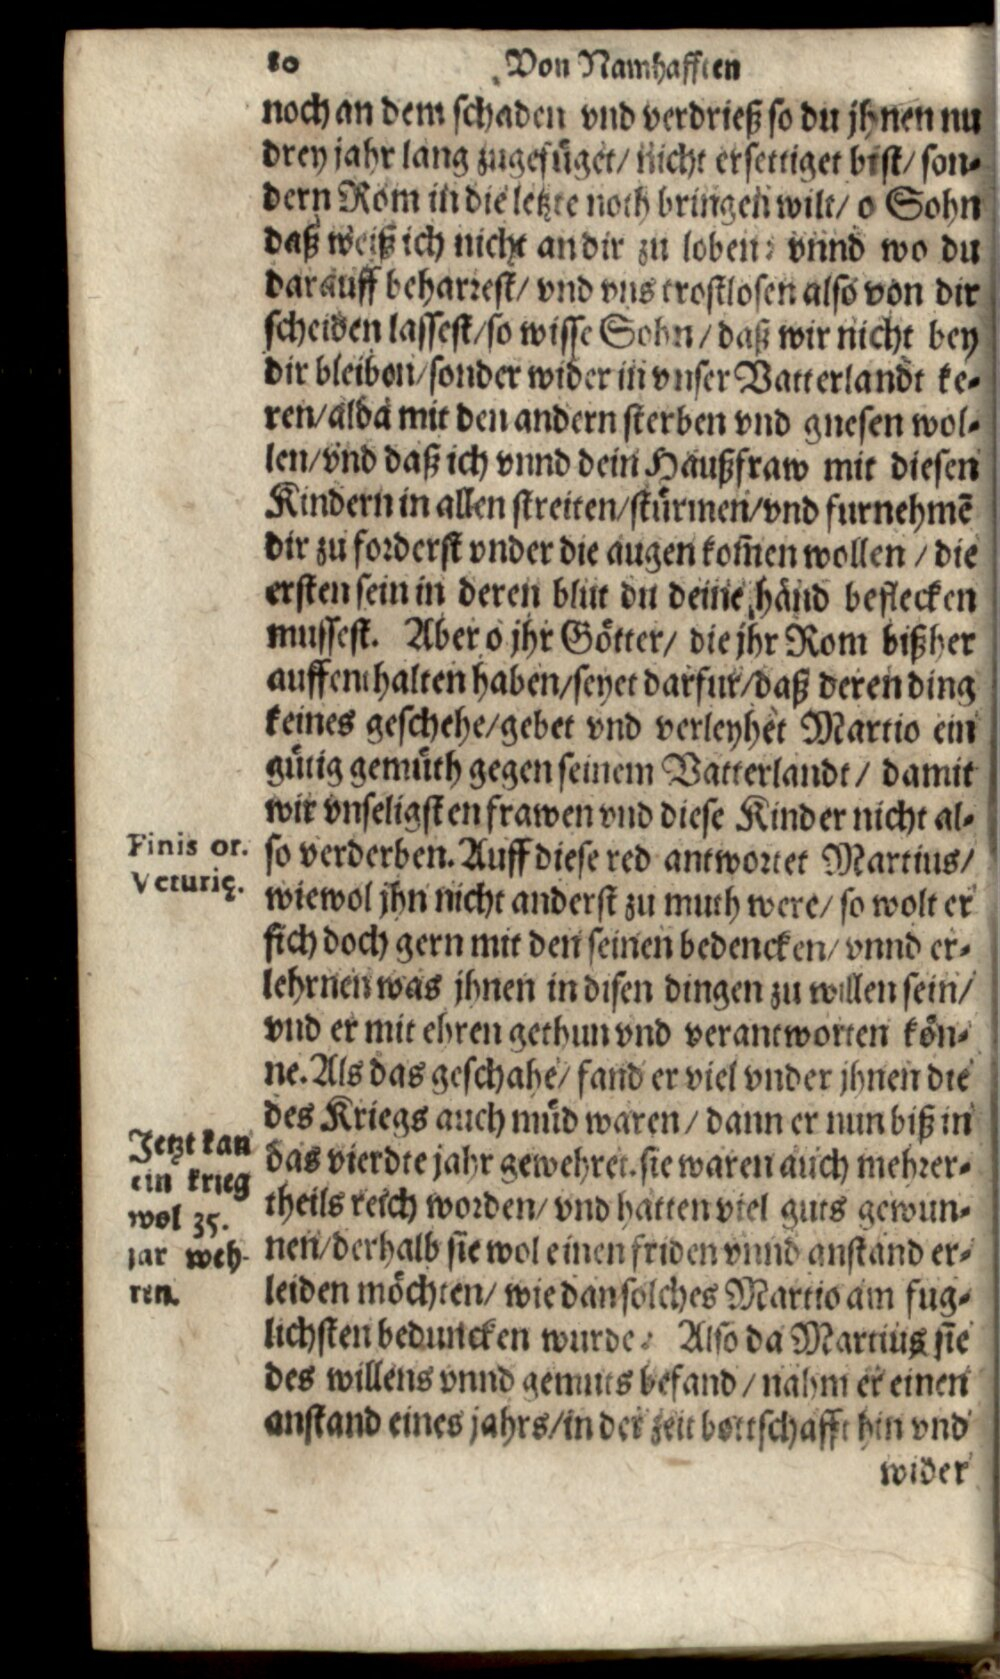 80 Von Namhafften
noch an dem schaden vnd verdrieß so du jhnen nu
drey jahr lang zugefüget/ nicht ersettiget bist/ son-
dern Rom in die letzte noth bringen wilt/ o Sohn
daß weiß ich nicht an dir zu loben: vnnd wo du
darauff beharrest/ vnd vns trostlosen also von dir
scheiden lassest/ so wisse Sohn/ daß wir nicht bey
dir bleiben/ sonder wider in vnser Vatterlandt ke-
ren/ alda mit den andern sterben vnd gnesen wol-
len/ vnd daß ich vnnd dein Haußfraw mit diesen
Kindern in allen streiten/ stürmen/ vnd furnehmē
dir zu forderst vnder die augen kom̄en wollen / die
ersten sein in deren blut du deine händ beflecken
mussest. Aber o jhr Götter/ die jhr Rom bißher
auffenthalten haben/ seyet darfur/ daß deren ding
keines geschehe/ gebet vnd verleyhet Martio ein
gütig gemüth gegen seinem Vatterlandt/ damit
wir vnseligsten frawen vnd diese Kinder nicht al-
Finis or.
Veturię.
so verderben. Auff diese red antwortet Martius/
wiewol jhn nicht anderst zu muth were/ so wolt er
sich doch gern mit den seinen bedencken/ vnnd er-
lehrnen was jhnen in disen dingen zu willen sein/
vnd er mit ehren gethun vnd verantworten kön-
ne. Als das geschahe/ fand er viel vnder jhnen die
des Kriegs auch müd waren/ dann er nun biß in
Jetzt kan
ein krieg
wol 35.
jar weh-
ren.
das vierdte jahr gewehret. sie waren auch mehrer-
theils reich worden/ vnd hatten viel guts gewun-
nen/ derhalb sie wol einen friden vnnd anstand er-
leiden möchten/ wie dan solches Martio am fug-
lichsten beduncken wurde: Also da Martius sie
des willens vnnd gemuts befand/ nahm er einen
anstand eines jahrs/ in der zeit bottschafft hin vnd
wider